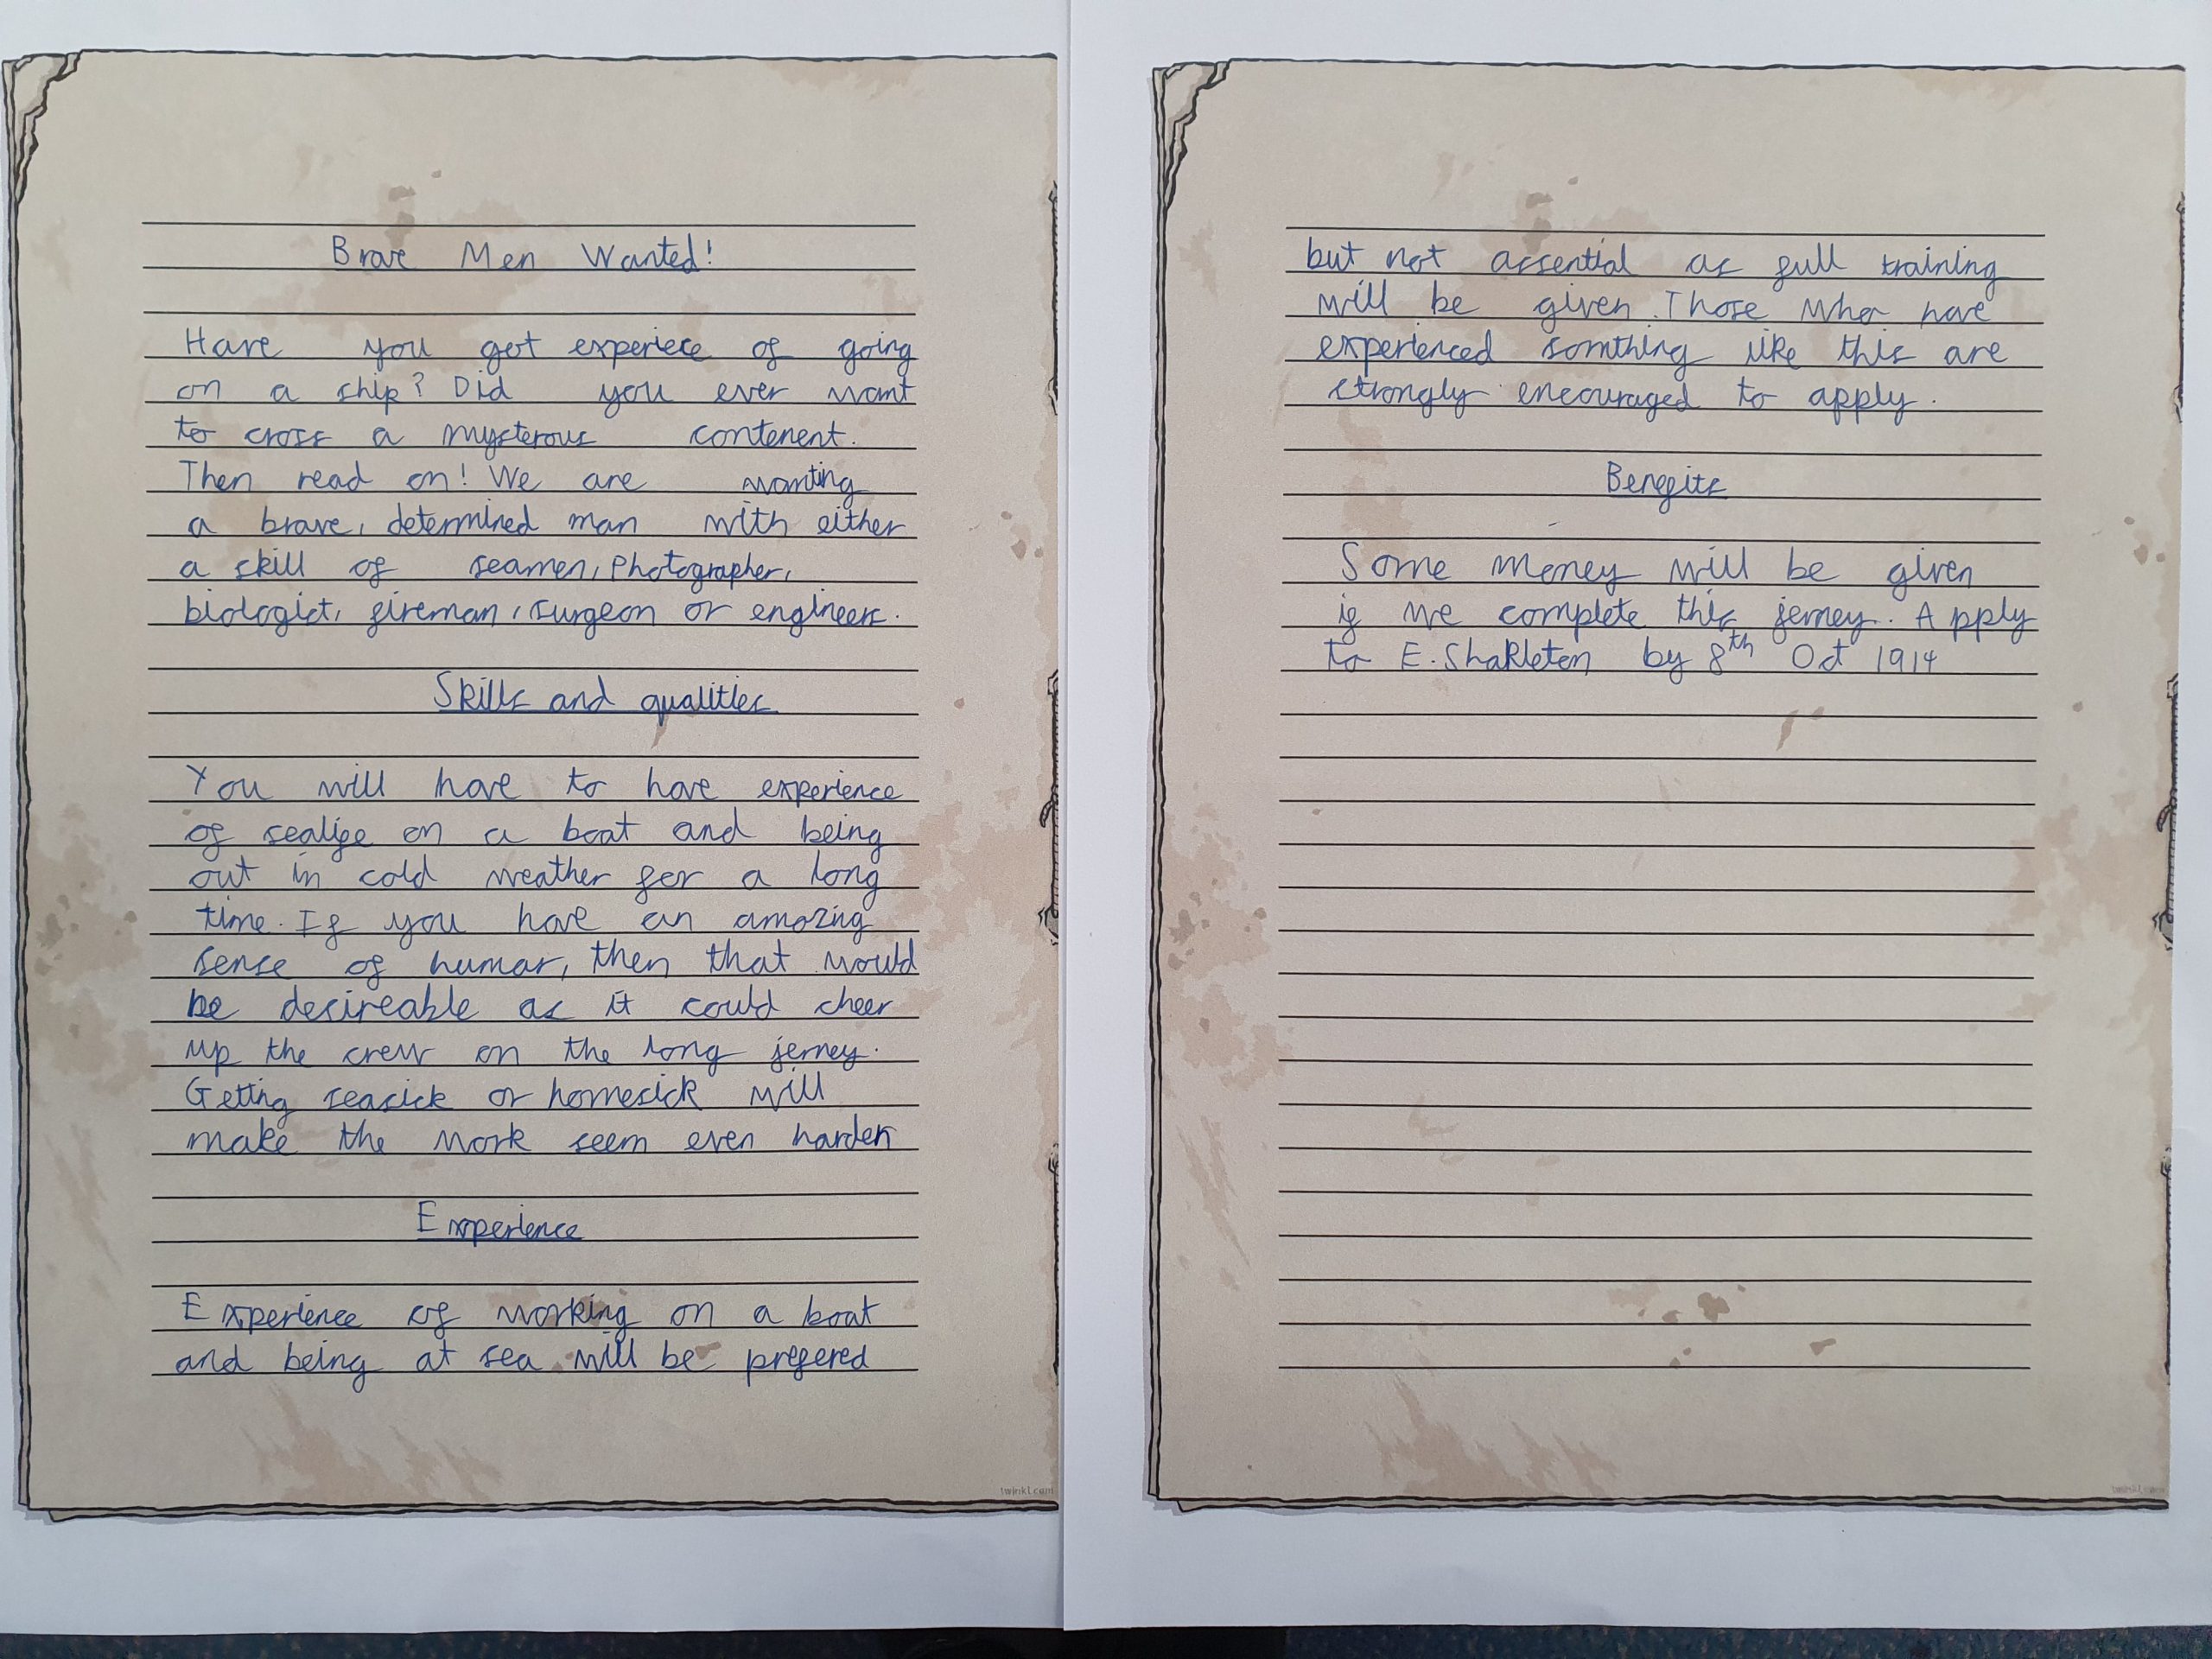 Brave Men Wanted!
Have you got experiece of going
on a ship? Did you ever want
to cross a mysterous contenent.
Then read on! We are wanting
a brave, determined man with either
a skill of seamen, Photographer,
biologist, fireman, surgeon or engineers.
Skills and qualities
You will have to have experience
of sealife on a boat and being
out in cold weather for a long
time. If you have an amazing
sense of humar, then that would
be desireable as it could cheer
up the crew on the long jerney.
Getting seasick or homesick will
make the work seem even harder
Experience
Experience of working on a boat
and being at sea will be prefered
twinkl.com
but not assential as full training
will be given. Those who have
experienced somthing like this are
strongly encouraged to apply.
Benefits
Some money will be given
if we complete this jerney. Apply
to E. Shakleton by 8th Oct 1914
twinkl.com